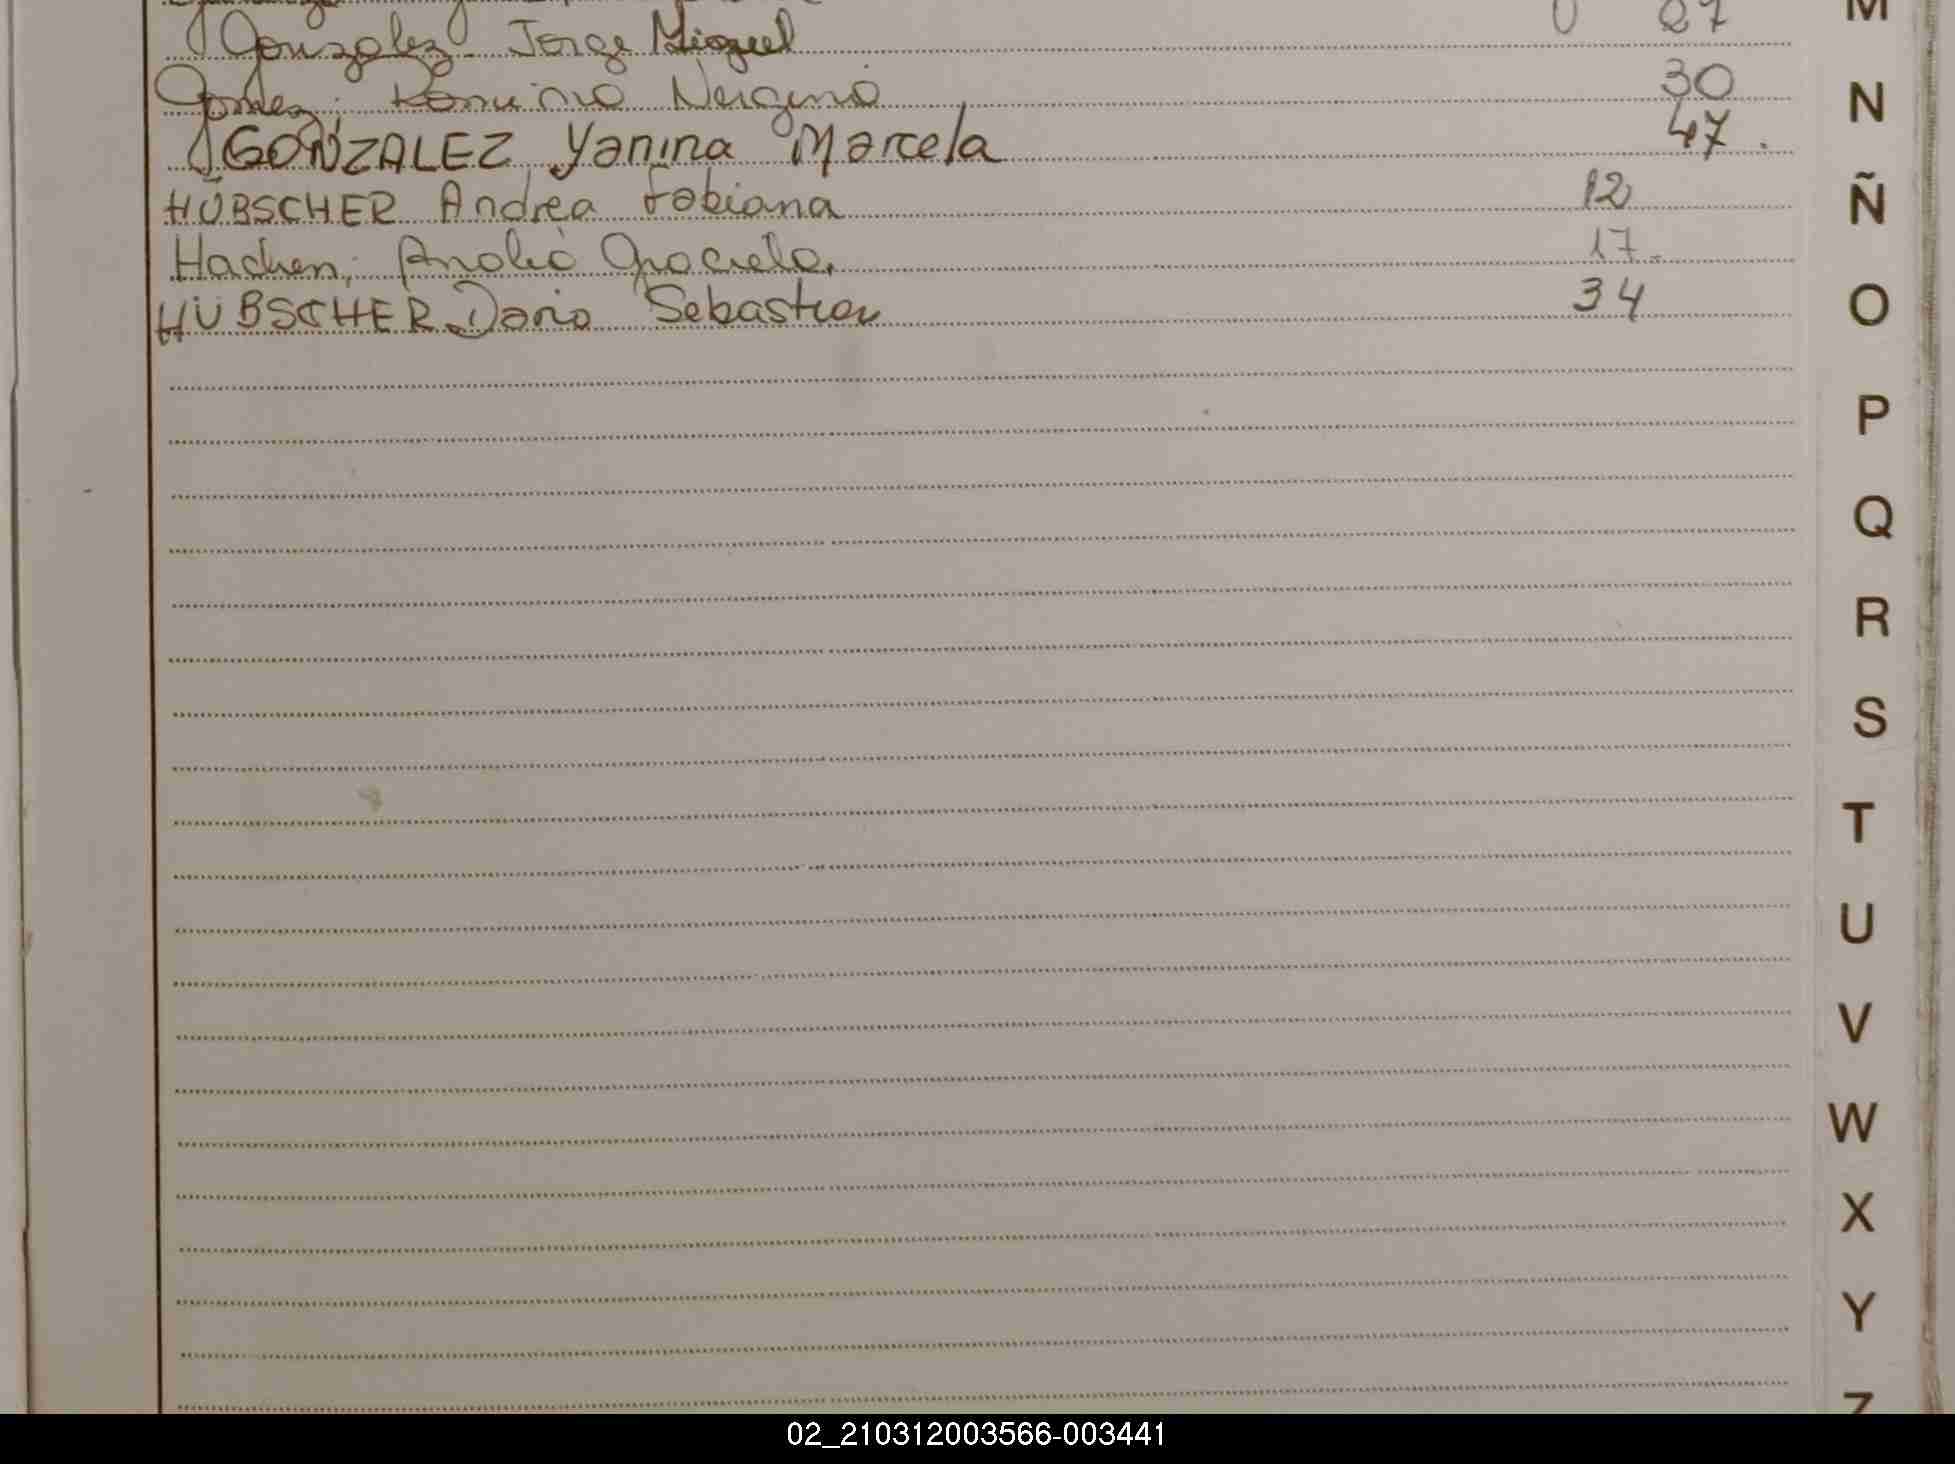 Gonzalez Jorge Miguel 27
Gomez: Romina Virginia 30
GONZALEZ Yanina Marcela 47.
HÜBSCHER Andrea Fabiana 12
Hachen, Analia Graciela. 17.
HÜBSCHER Dario Sebastian 34
M
N
Ñ
O
P
Q
R
S
T
U
V
W
X
Y
Z
02_210312003566-003441